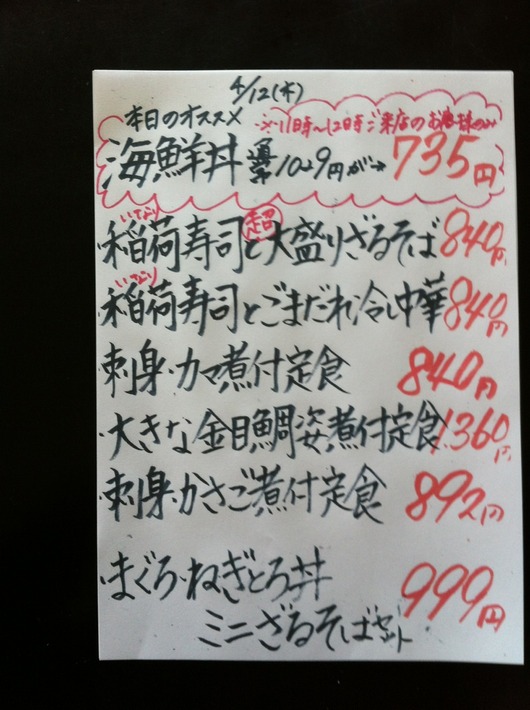 4/12(木)
本日のオススメ ※11時~12時ご来店のお客様のみ
海鮮丼 通常1029円が→735円
いなり 超
稲荷寿司と大盛りざるそば 840円
いなり
稲荷寿司とごまだれ冷し中華 840円
刺身・カマ煮付定食 840円
大きな金目鯛姿煮付定食 1.360円
刺身・かさご煮付定食 892円
まぐろ・ねぎとろ丼
ミニざるそばセット 999円